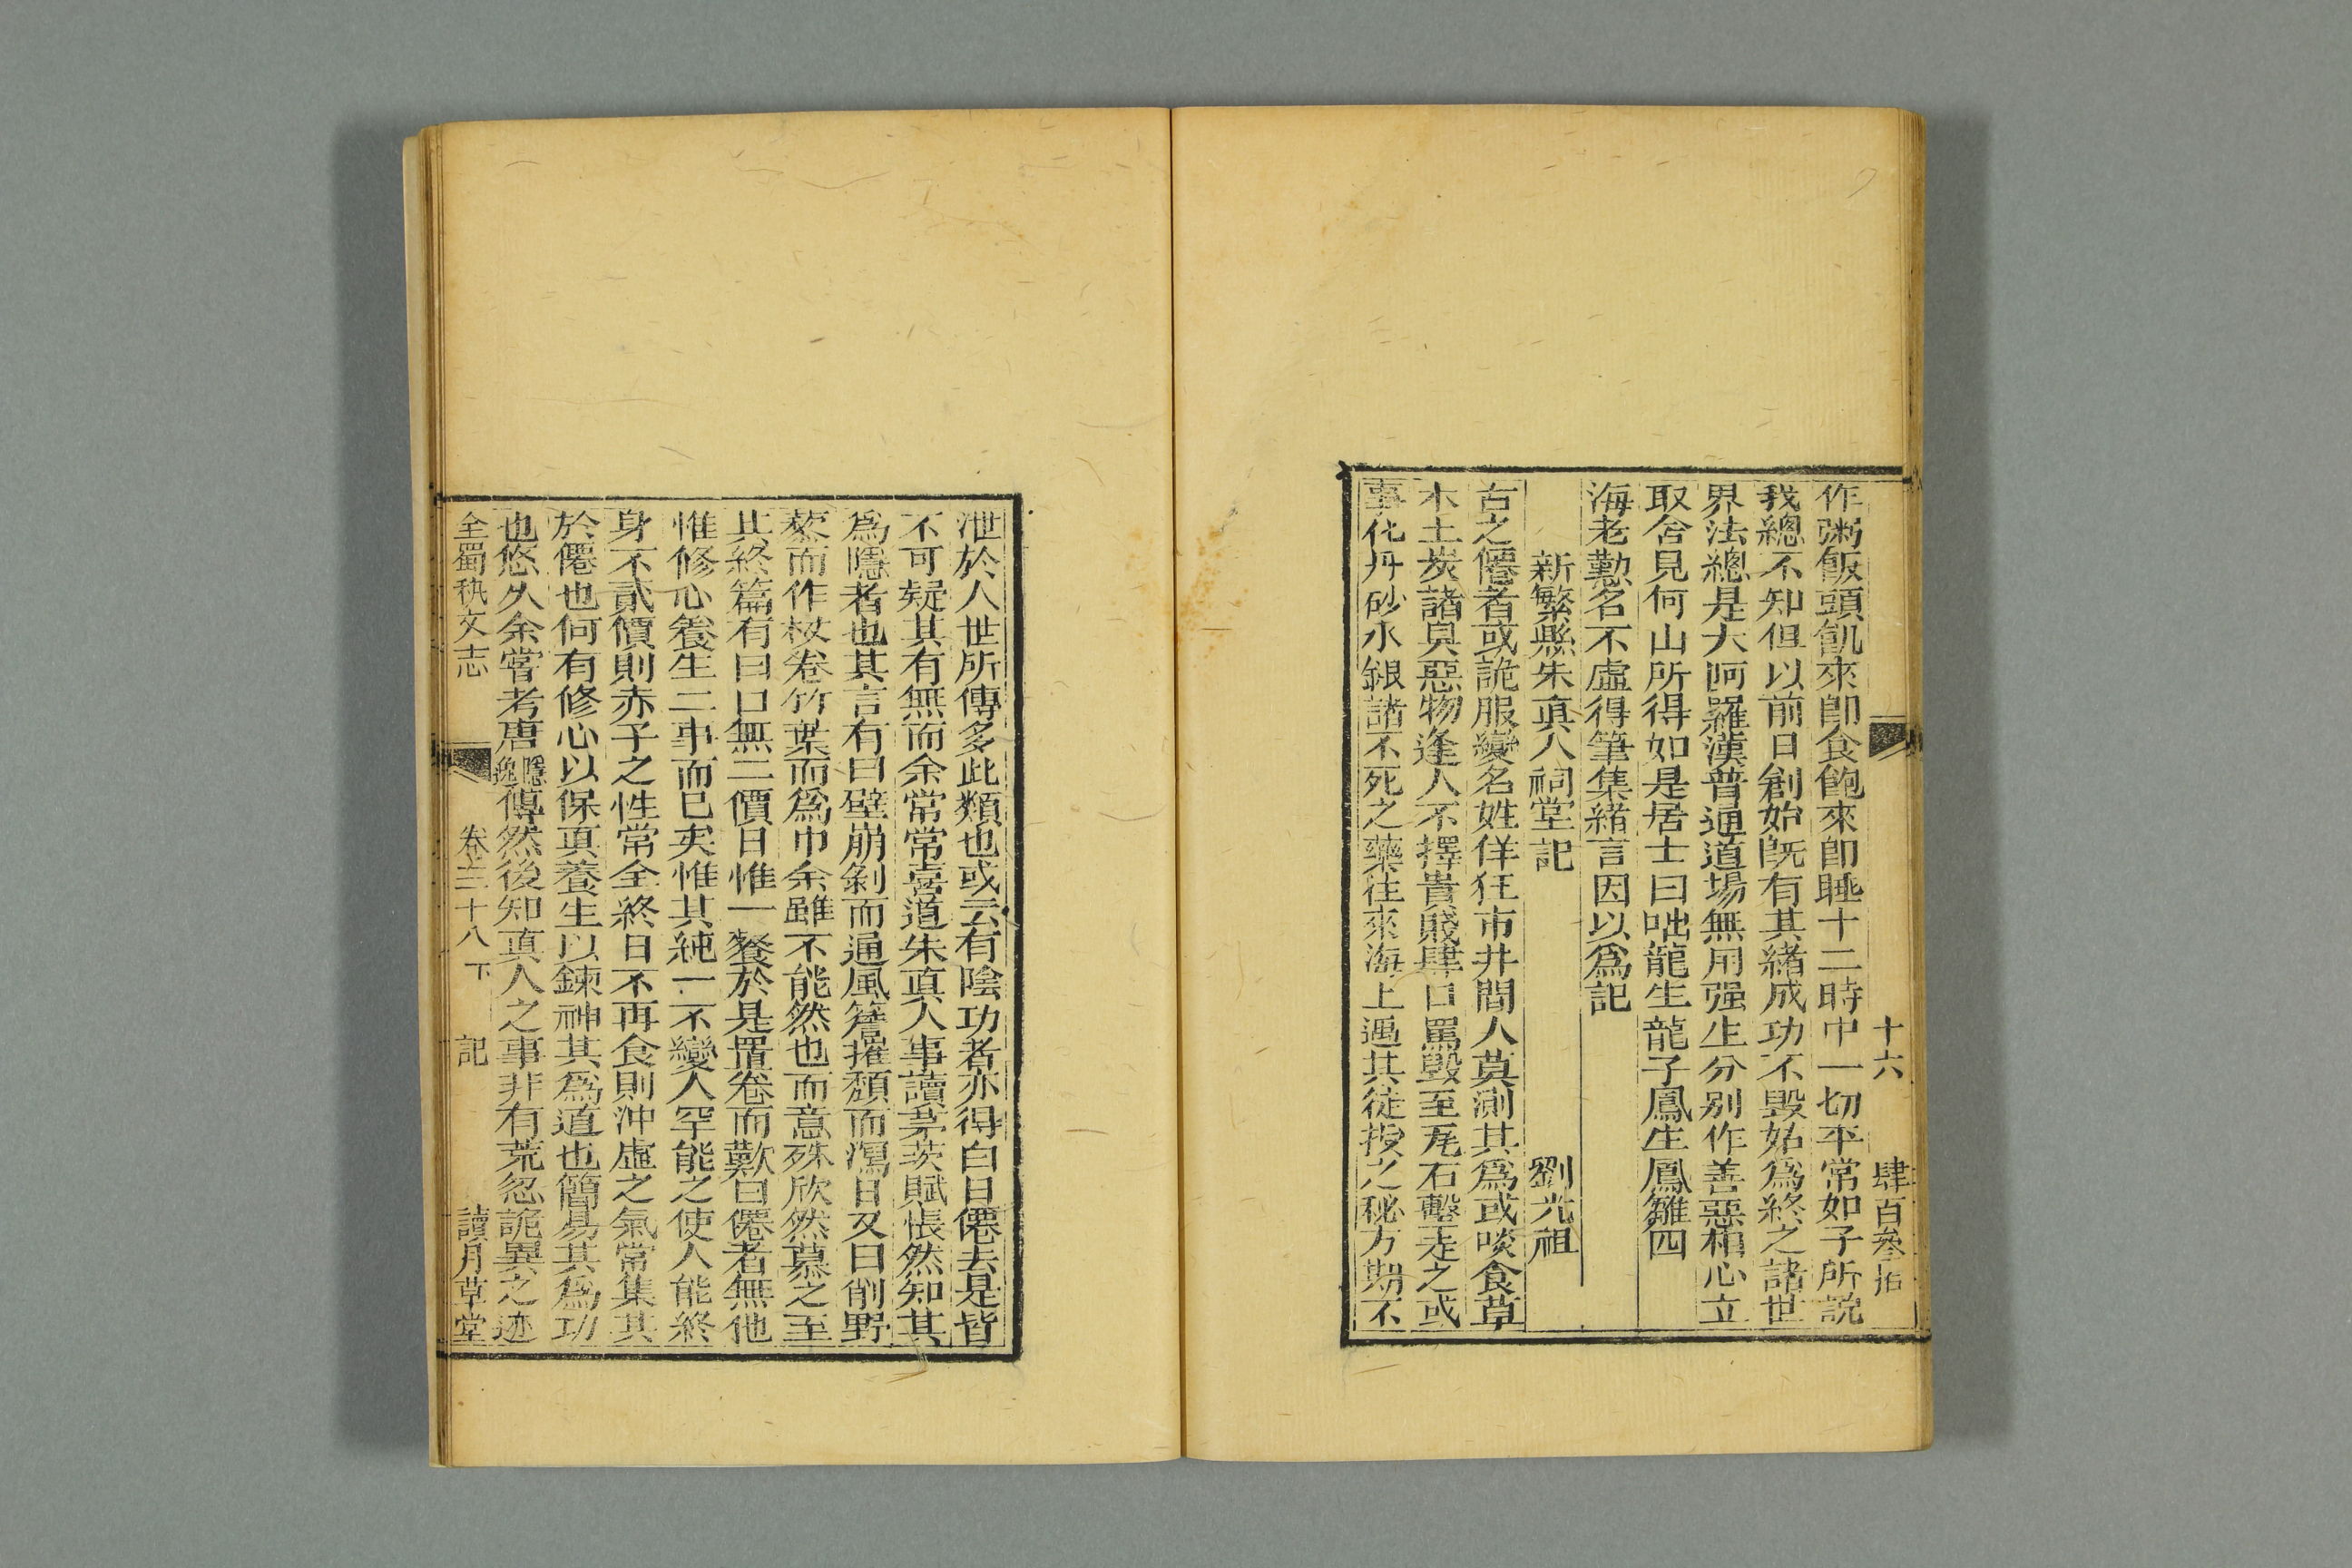 十六　肆百叁拾
作粥飯頭飢來卽食飽來卽睡十二時中一切平常如子所說
我總不知但以前日創始旣有其緖成功不毀始爲終之諸世
界法總是大阿羅漢普通道場無用强生分别作善惡相心立
取舍見何山所得如是居士曰咄龍生龍子鳳生鳳雛四
海老勤名不虛得筆集緒言因以爲記
新繁縣朱眞人祠堂記　劉光祖
古之僊者或詭服變名姓佯狂市井間人莫測其爲或啖食草
木土炭諸臭惡物逢人不擇貴賤肆口罵毀至瓦石擊走之或
事化丹砂水銀諸不死之藥往來海上遇其徒授之秘方期不
泄於人世所傳多此類也或云有陰功者亦得白日僊去是皆
不可疑其有無而余常常喜道朱眞人事讀茅茨賦悵然知其
爲隱者也其言有曰壁崩剝而通風簷摧頹而瀉日又曰削野
藜而作杖卷竹葉而爲巾余雖不能然也而意殊欣然慕之至
其終篇有曰口無二價日惟一餐於是置卷而歎曰僊者無他
惟修心養生二事而已矣惟其純一不變人罕能之使人能終
身不貳價則赤子之性常全終日不再食則沖虛之氣常集其
於僊也何有修心以保眞養生以鍊神其爲道也簡易其爲功
也悠久余嘗考唐隱逸傳然後知眞人之事非有荒忽詭異之迹
全蜀秇文志　卷三十八下　記　讀月草堂